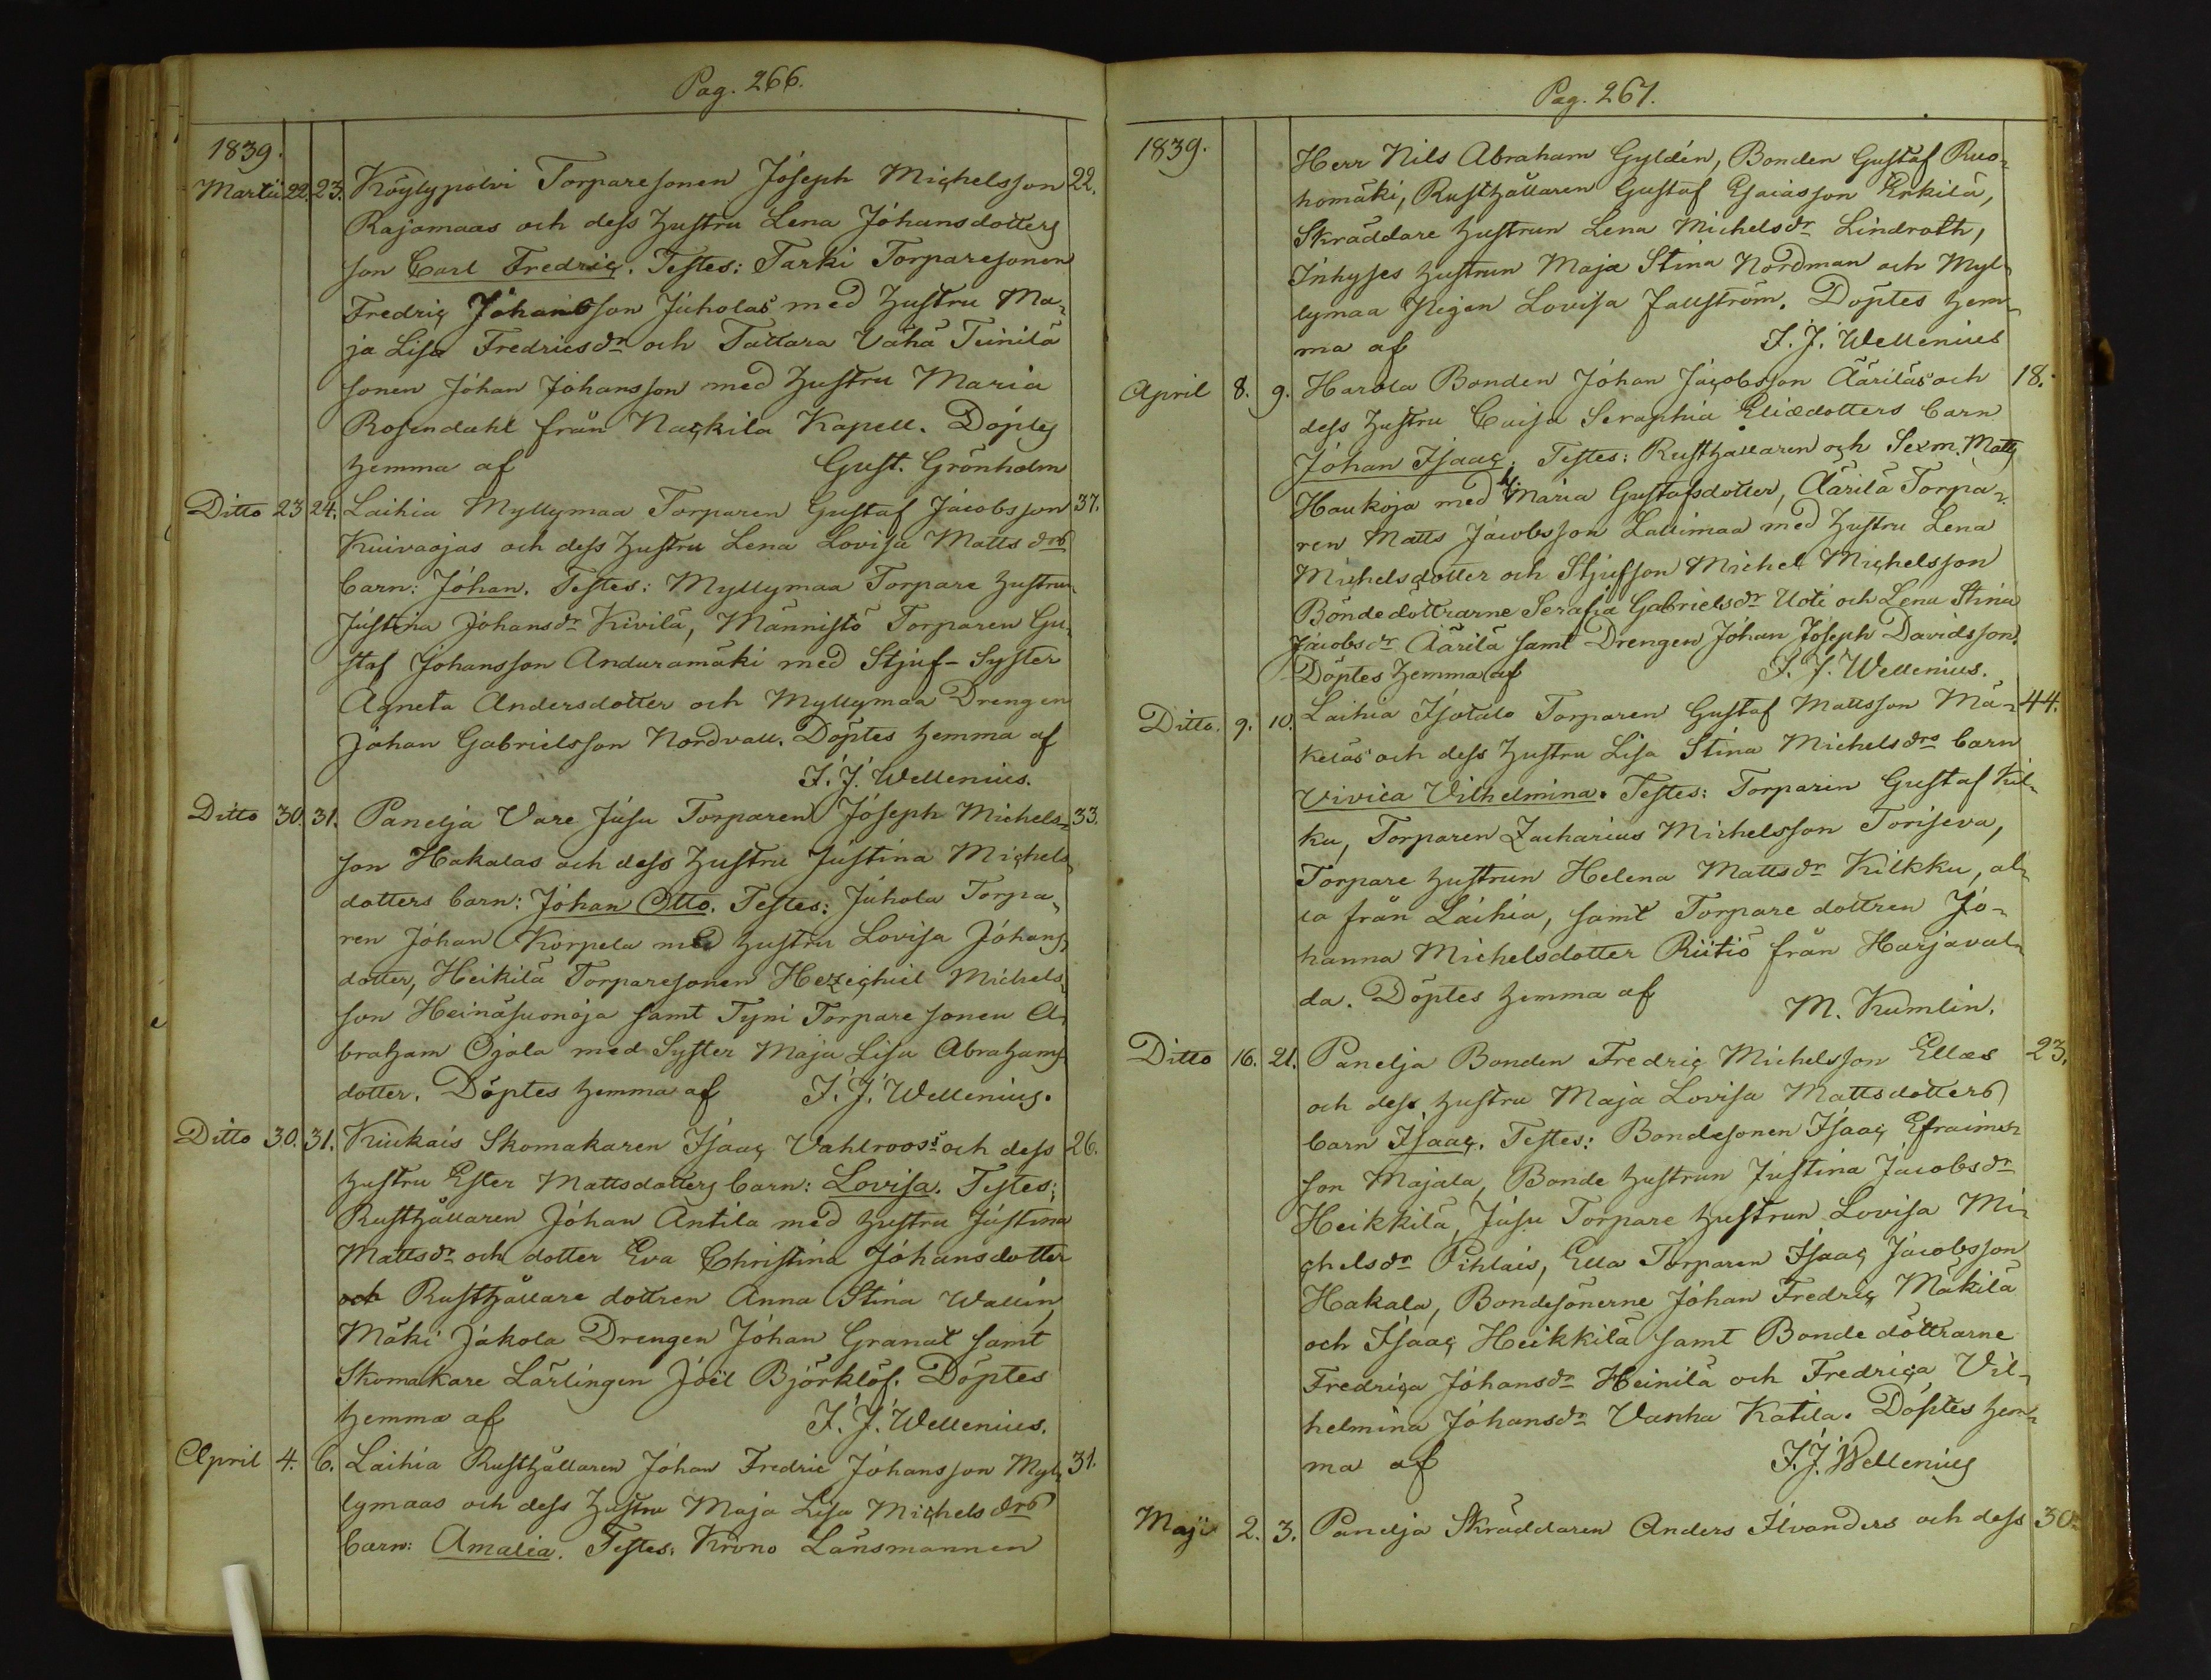 Pag. 266.
1839.
Martii 22. 23. Köylypolvi Torparesonen Joseph Michelsson 22.
Rajamaas och dess hustru Lena Johansdotters
son Carl Fredric. Testes: Tarki Torparesonen
Fredric Johansson Juholas med hustru Ma-
ja Lisa Fredricsdr och Tattara Vähä Teinilä
sonen Johan Johansson med hustru Maria
Rosendahl från Nackila Kapell. Döptes
hemma af Gust. Grönholm
Ditto 23 24. Laihia Myllymaa Torparen Gustaf Jacobsson 37.
Kuivaojas och dess hustru Lena Lovisa Matts drs
barn: Johan. Testes: Myllymaa Torpare hustrun
Justina Johansdr Kivilä, Männistö Torparen Gu-
staf Johansson Anduramäki med Stjuf-Syster
Agneta Andersdotter och Myllymaa Drengen
Johan Gabrielsson Nordvall. Döptes hemma af
F. J. Wellenius.
Ditto 30. 31. Panelja Vare Jusu Torparen Joseph Michels- 33.
son Hakalas och dess hustru Justina Michels
dotters barn: Johan Otto. Testes: Juhola Torpa-
ren Johan Korpela med hustru Lovisa Johans
dotter, Heikilä Torparesonen Hezechiel Michels-
son Heinäsuonoja samt Tyni Torpare sonen A-
braham Ojala med Syster Maja Lisa Abrahams
dotter. Döptes hemma af F. J. Wellenius.
Ditto 30. 31. Kiukais Skomakaren Isaac Vahlroos's och dess 26.
hustru Ester Mattsdotters barn: Lovisa. Testes:
Rusthållaren Johan Antila med hustru Justina
Mattsdr och dotter Eva Christina Johansdotter
och Rusthållare dottren Anna Stina Wallin,
Mäki Jakola Drengen Johan Granat samt
Skomakare Lärlingen Joël Björklöf. Döptes
hemma af F. J. Wellenius.
April 4. 6. Laihia Rusthållaren Johan Fredric Johansson Myl- 31.
lymaas och dess hustru Maja Lisa Michels drs
barn: Amalia. Testes: Krono Länsmannen
Pag. 267.
1839.
Herr Nils Abraham Gyldén, Bonden Gustaf Ruo-
homäki, Rusthållaren Gustaf Esaiasson Erkilä,
Skräddare hustrun Lena Michelsdr Lindroth,
Inhyses hustrun Maja Stina Nordman och Myl-
lymaa Pigan Lovisa Fallström. Döptes hem-
ma af F. J. Wellenius
April 8. 9. Harola Bonden Johan Jacobsson Äärilas och 18.
dess hustru Caisa Seraphia Eliædotters barn
Johan Isaac. Testes: Rusthållaren och Sexm. Matts
Haukoja med h. Maria Gustafsdotter, Äärilä Torpa-
ren Matts Jacobsson Lallimaa med hustru Lena
Michelsdotter och Stjufson Michel Michelsson
Bondedöttrarne Serafia Gabrielsdr Uoti och Lena Stina
Jacobsdr Äärilä samt Drengen Johan Joseph Davidsson.
Döptes hemma af F. J. Wellenius.
Ditto. 9. 10. Laihia Isotalo Torparen Gustaf Mattsson Mä- 44.
keläs och dess hustru Lisa Stina Michels drs barn
Vivica Vilhelmina. Testes: Torparen Gustaf Kil-
ku, Torparen Zacharius Michelsson Toriseva,
Torpare hustrun Helena Mattsdr Kilkku, al-
la från Laihia, samt Torpare dottren Jo-
hanna Michelsdotter Riitiö från Harjaval-
da. Döptes hemma af M. Kumlin.
Ditto 16. 21. Panelja Bonden Fredric Michelsson Ellas 23.
och dess hustru Maja Lovisa Mattsdotters
barn Isaac. Testes: Bondesonen Isaac Efraims-
son Majala, Bonde hustrun Justina Jacobsdr
Heikkilä, Jusu Torpare hustrun Lovisa Mi-
chelsdr Pihlais, Ella Torparen Isaac Jacobsson
Hakala, Bondesönerne Johan Fredric Mäkilä
och Isaac Heikkilä samt Bonde döttrarne
Fredrica Johansdr Heinilä och Fredrica Vil-
helmina Johansdr Vanha Katila. Döptes hem-
ma af F. J. Wellenius
Maji 2. 3. Panelja Skräddaren Anders Ilvanders och dess 30.